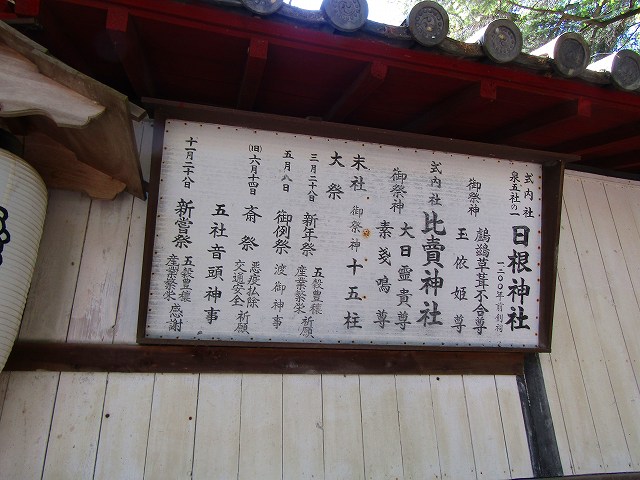 式内社
泉五社の一
日根神社
一二〇〇年前創祠
御祭神
鸕鷀草葺不合尊
玉依姫尊
式内社
比賣神社
御祭神
大日霊貴尊
素戔嗚尊
末社
御祭神
十五柱
大祭
三月二十日
新年祭
五穀豊穰
産業繁栄
祈願
五月八日
御例祭
渡御神事
(旧)六月十四日
斎祭
悪疫払除
交通安全
祈願
五社音頭神事
十一月二十八日
新嘗祭
五穀豊穰
産業繁栄
感謝